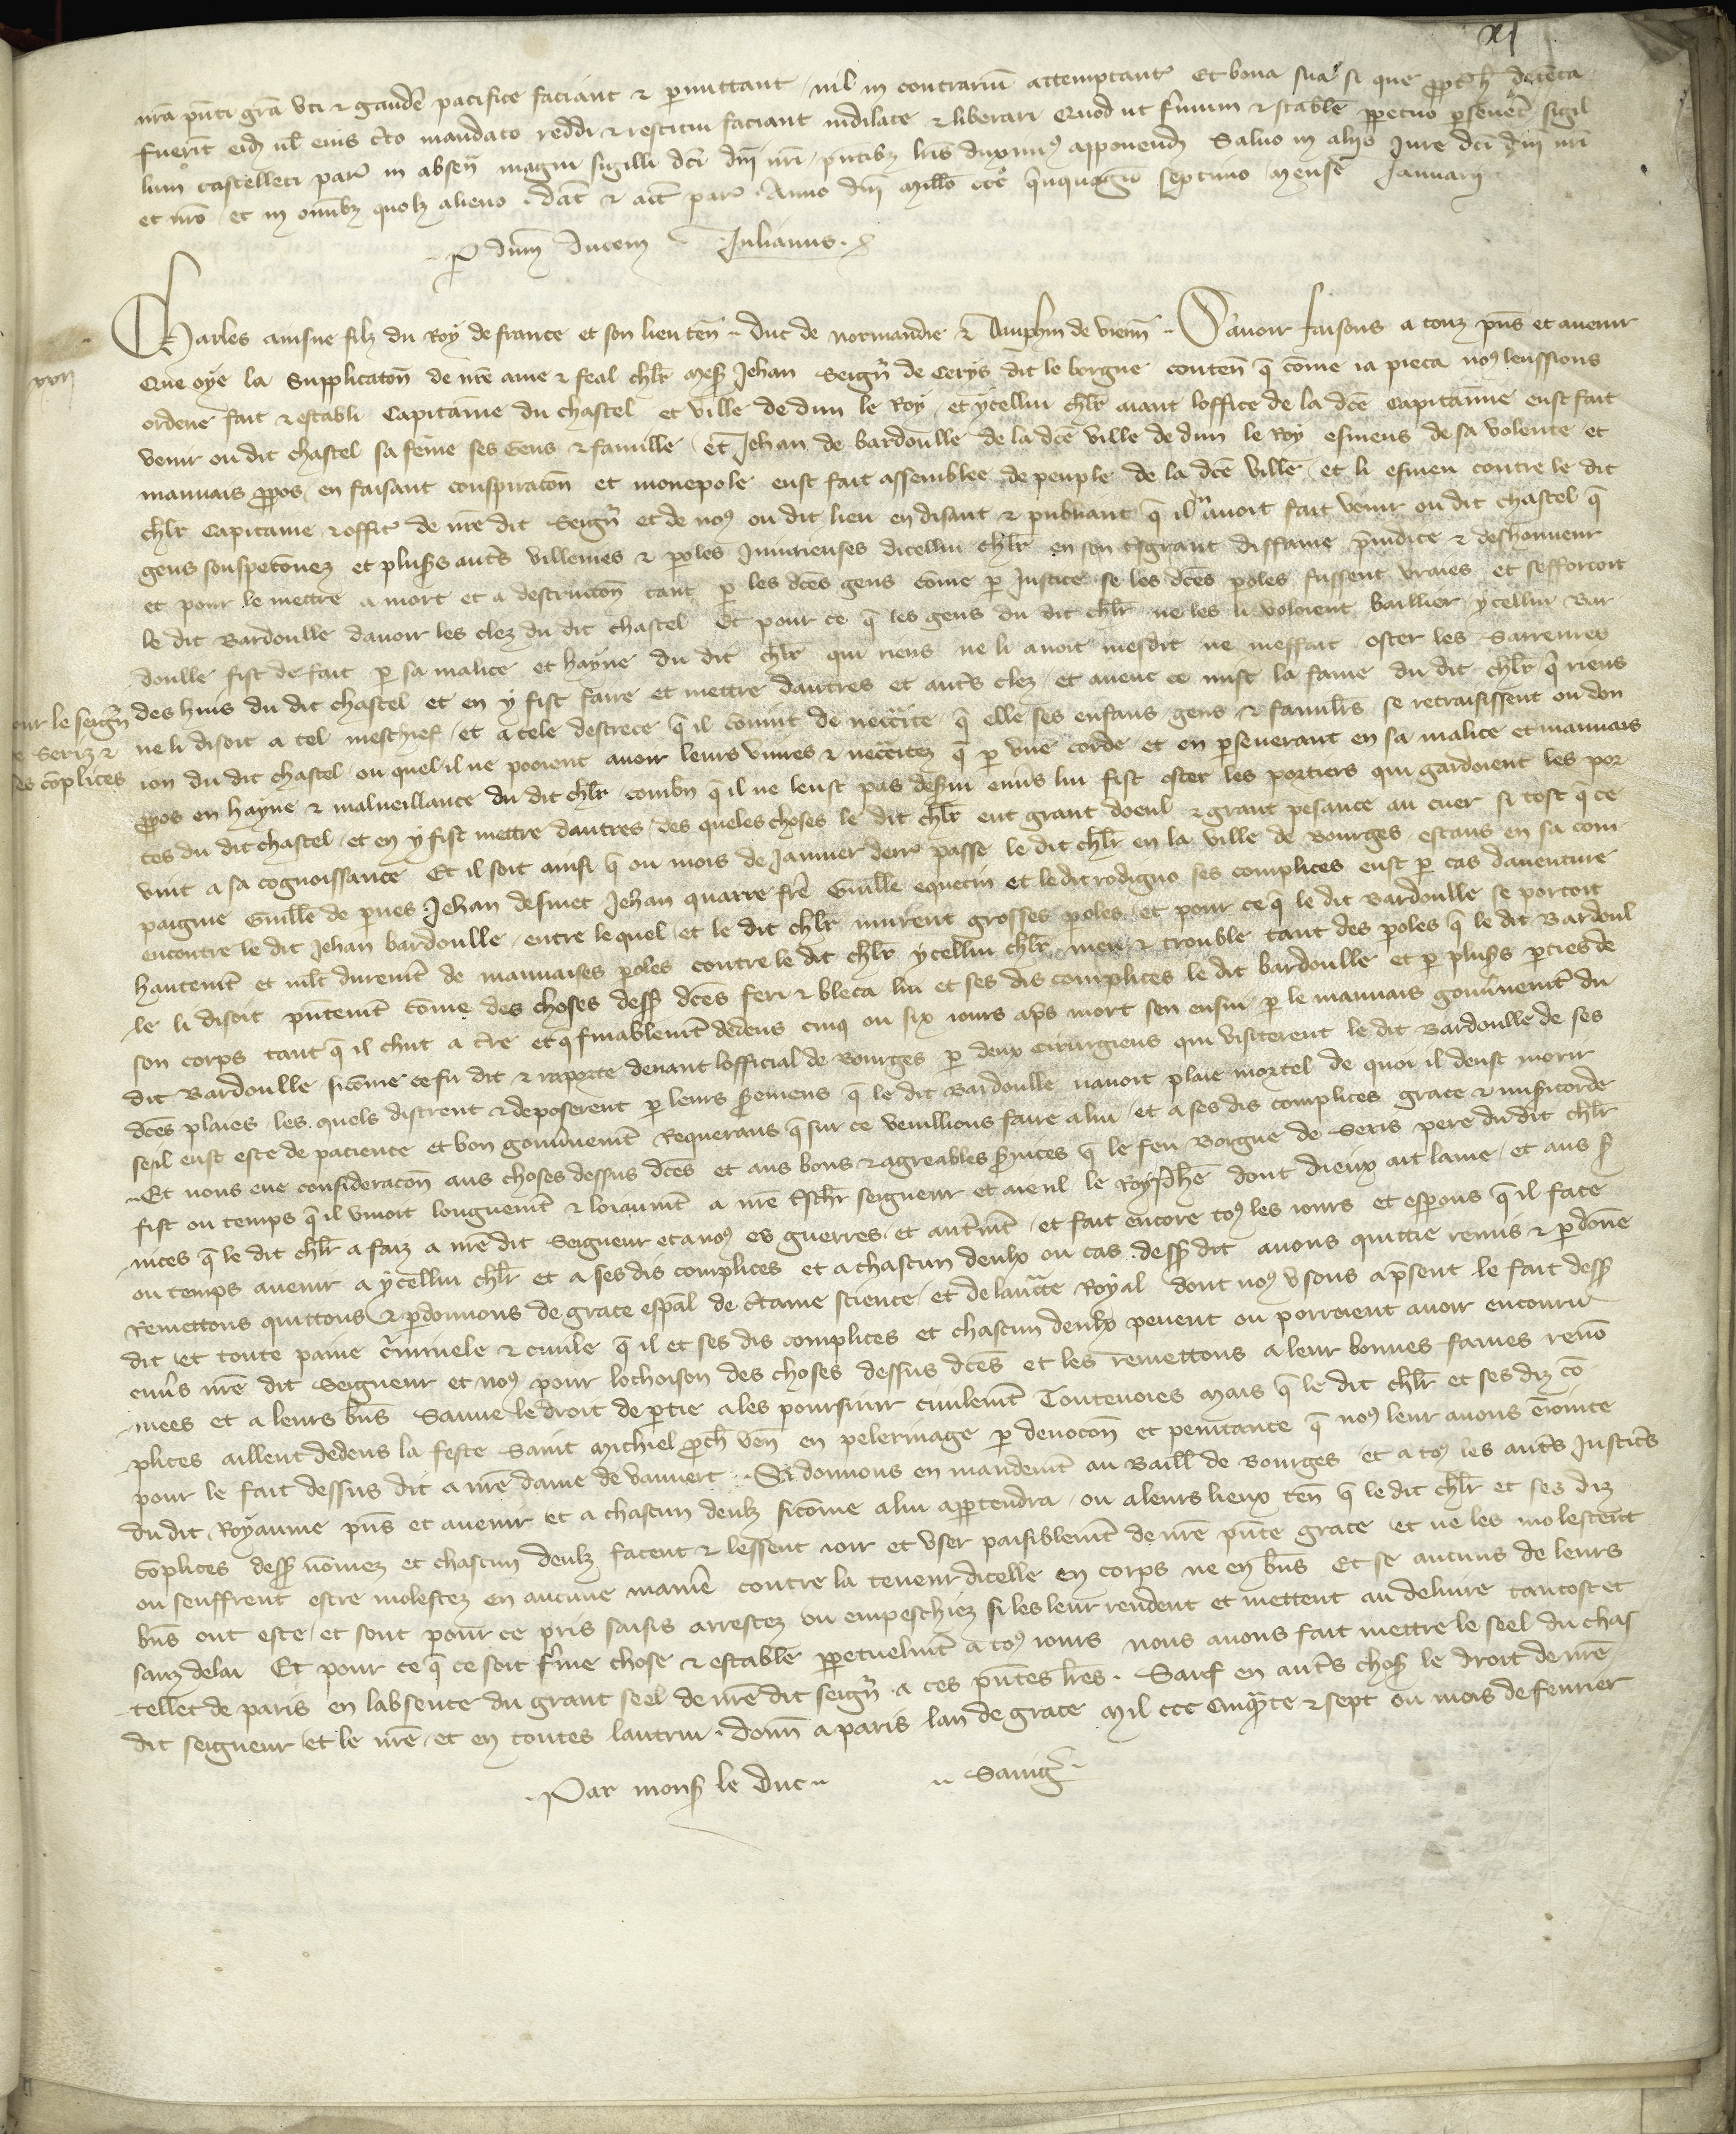 xj
nrã pñti grã uti & gaudẽ pacifice faciant & pmittant nil in contrariũ attemptantꝭ Et bona sua si que ppt̃ħ detẽta
fuerĩt eid̃ ul̃ eius c̃to mandato reddi & restitui faciant indilate & liberari Quod ut f̃mum & stabile ppetuo psevet̃ sigil
lum castelleti paꝝ in absen̄ magni sigilli dc̃i dñi nr̃i pñtibꝫ lr̃is duximꝰ apponend̃ Salvo in alijs Jure dc̃i dñi nr̃i
et nr̃o et in om̃ibꝫ quolꝫ alieno . dat̃ & act̃ paꝝ . Anno dñi Mill̃o ccc̊ q̃nquagᵒ septimo mense Januarij
P dñm ducem Julianus .
Charles ainsne filz du Roy de france et son lieuten̄ duc de normandie & dalphin de vienn̄ . Savoir faisons a touz pñs et avenir
Que oye la Supplicatõn de nr̃e ame & feal chlr̃ Mesꝭ Jehan Seignr̃ de Cerys dit le borgne conten̄ q̃ cõme ia pieca noꝰ leussions
ordene fait & establi Capitaine du chastel et ville de dun le Roy et ycellui chlr̃ aiant loffice de la dc̃e Capitainnie eust fait
venir ou dit chastel sa fẽme ses Gens & famille et Jehan de bardoulle de la dc̃e ville de dun le Roy esmeus de sa volente et
mauvais ppos en faisant conspiratõn et monepole eust fait assemblee de peuple de la dc̃e ville et li esmeu contre le dit
chlr̃ Capitaine & officꝭ de nr̃e dit Seignr̃ et de noꝰ ou dit lieu en disant & publiant q̃ il avoit fait venir ou dit chastel q̃
gens souspeconez et plusꝭs aut̃s villenies & poles Iniurieuses dicellui chlr̃ en son t̃sgrant diffame p̃iudice & deshonneur
et pour le mettre a mort et a destructõn tant p les dc̃es gens cõme p Justice se les dc̃es poles fussent vraies et sefforcoit
le dit Bardoulle davoir les clez du dit chastel Et pour ce q̃ les gens du dit chlr̃ ne les li voloient baillier ycellui Bar
doulle fist de fait p sa malice et hayne du dit chlr̃ qui riens ne li avoit mesdit ne meffait oster les Sarreures
des huis du dit chastel et en y fist faire et mettre dautres et aut̃s clez et avenc ce mist la fame du dit chlr̃ q̃ riens
ne li disoit a tel meschief et a tele destrece q̃ il covint de necc̃ite q̃ elle ses enfans gens & famil̃rs se retraisissent ou don
ion du dit chastel ou quel il ne pooient avoir leurs vivres & necc̃itez q̃ p une corde et en pseverant en sa malice et mauvais
ppos en hayne & malveillance du dit chlr̃ combn̄ q̃ il ne leust pas desꝭvi env̄s lui fist oster les portiers qui gardoient les por
tes du dit chastel et en y fist mettre dautres des queles choses le dit chlr̃ eut grant doeul & grant pesance au cuer si tost q̃ ce
vint a sa cognoissance Et il soit ainsi q̃ ou mois de Janvier derrꝭ passe le dit chlr̃ en la ville de Bourges estans en sa com
paignie Guill̃e de pves Jehan desmet Jehan quarre fr̃e Guill̃e equetin et ledit rodigno ses complices eust p cas daventure
encontre le dit Jehan bardoulle entre lequel et le dit chlr̃ murent grosses poles et pour ce q̃ le dit Bardoulle se portoit
hautemt̃ et mlt̃ duremt̃ de mauvaises poles contre le dit chlr̃ ycellui chlr̃ meu & trouble tant des poles q̃ le dit Bardoul
le li disoit pñtemt̃ cõme des choses dessꝭ dc̃es feri & bleca lui et ses dis complices le dit bardoulle et p plusꝭs pties de
son corps tant q̃ il chut a t̃re et q̃ finablemt̃ dedens cinq ou six iours ap̃s mort sen ensui p le mauvais gouv̄nemt̃ du
dit Bardoulle sicõme ce fu dit & raporte devant lofficial de Bourges p deux cirurgiens qui visiterent le dit Bardoulle de ses
dc̃es plaies les quels distrent & deposerent p leurs sꝭemens q̃ le dit Bardoulle navoit plaie mortel de quoi il deust morir
seil eust este de pacience et bon gouv̄nemt̃ Requerans q̃ sur ce veuillions faire a lui et a ses dis complices grace & misꝭicorde
Et nous eue consideracõn aus choses dessus dc̃es et aus bons & agreables sꝭvices q̃ le feu Borgne de Seris pere du dit chlr̃
fist ou temps q̃ il vivoit longuemt̃ & loiaumt̃ a nr̃e t̃schr̃ seigneur et aieul le Roy Phẽ dont dieux ait lame et aus sꝭ
vices q̃ le dit chlr̃ a faiz a nr̃e dit Seigneur et a noꝰ es guerres et aut̃mt̃ et fait encore toꝰ les iours et espons q̃ il face
ou temps avenir a ycellui chlr̃ et a ses dis complices et a chascun deulx ou cas dessꝭ dit avons quittie remis & pdone
Remettons quittons & pdonnons de grace esp̃al de c̃taine science et de lauct̃te Royal dont noꝰ usons a p̃sent le fait dessꝭ
dit et toute paine c̃riminele & civile q̃ il et ses dis complices et chascun deulx pevent ou porroient avoir encouru
env̄s nr̃e dit Seigneur et noꝰ pour lochoison des choses dessus dc̃es et les remettons a leur bonnes fames renõ
mees et a leurs bñs Sauve le droit de ptie a les poursuir civilemt̃ Toutevoies Mais q̃ le dit chlr̃ et ses diz cõ
plices aillent dedens la feste Saint Michiel pch̃ ven̄ en pelerinage p devocõn et penitance q̃ noꝰ leur avons ẽioincte
pour le fait dessus dit a nr̃e dame de vauvert . Si donnons en mandemt̃ au Baill̃ de Bourges et a toꝰ les aut̃s Justic̃rs
du dit Royaume pñs et avenir et a chascun deulz sicõme a lui aptendra ou a leurs lieux ten̄ q̃ le dit chlr̃ et ses diz
cõplices dessꝭ nõmez et chascun deulz facent & lessent ioir et user paisiblemt̃ de nr̃e pñte grace et ne les molestent
ou seuffrent estre molestez en aucune maniẽ contre la teneur dicelle en corps ne en bñs Et se aucuns de leurs
bñs ont este et sont pour ce pris saisis arrestez ou empeschiez si les leur rendent et mettent au delivre tantost et
sanz delai Et pour ce q̃ ce soit f̃me chose & estable ppetuelmt̃ a toꝰ iours nous avons fait mettre le seel du chas
tellet de paris en labsence du grant seel de nr̃e dit seignr̃ a ces pñtes lr̃es . Sauf en aut̃s chosꝭ le droit de nr̃e
dit seigneur et le nr̃e et en toutes lautrui . donn̄ a paris lan de grace Mil ccc cinq̃te & sept ou mois de fevrier
Par monsꝭ le duc Savigꝭ
xvij
our le seignr̃
e Seriz &
es cõplices